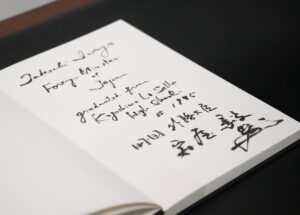 Takeshi Iwaya
Foreign Minister
of
Japan
graduated from
Kagoshima La Salle
High School
外務大臣
岩屋 毅